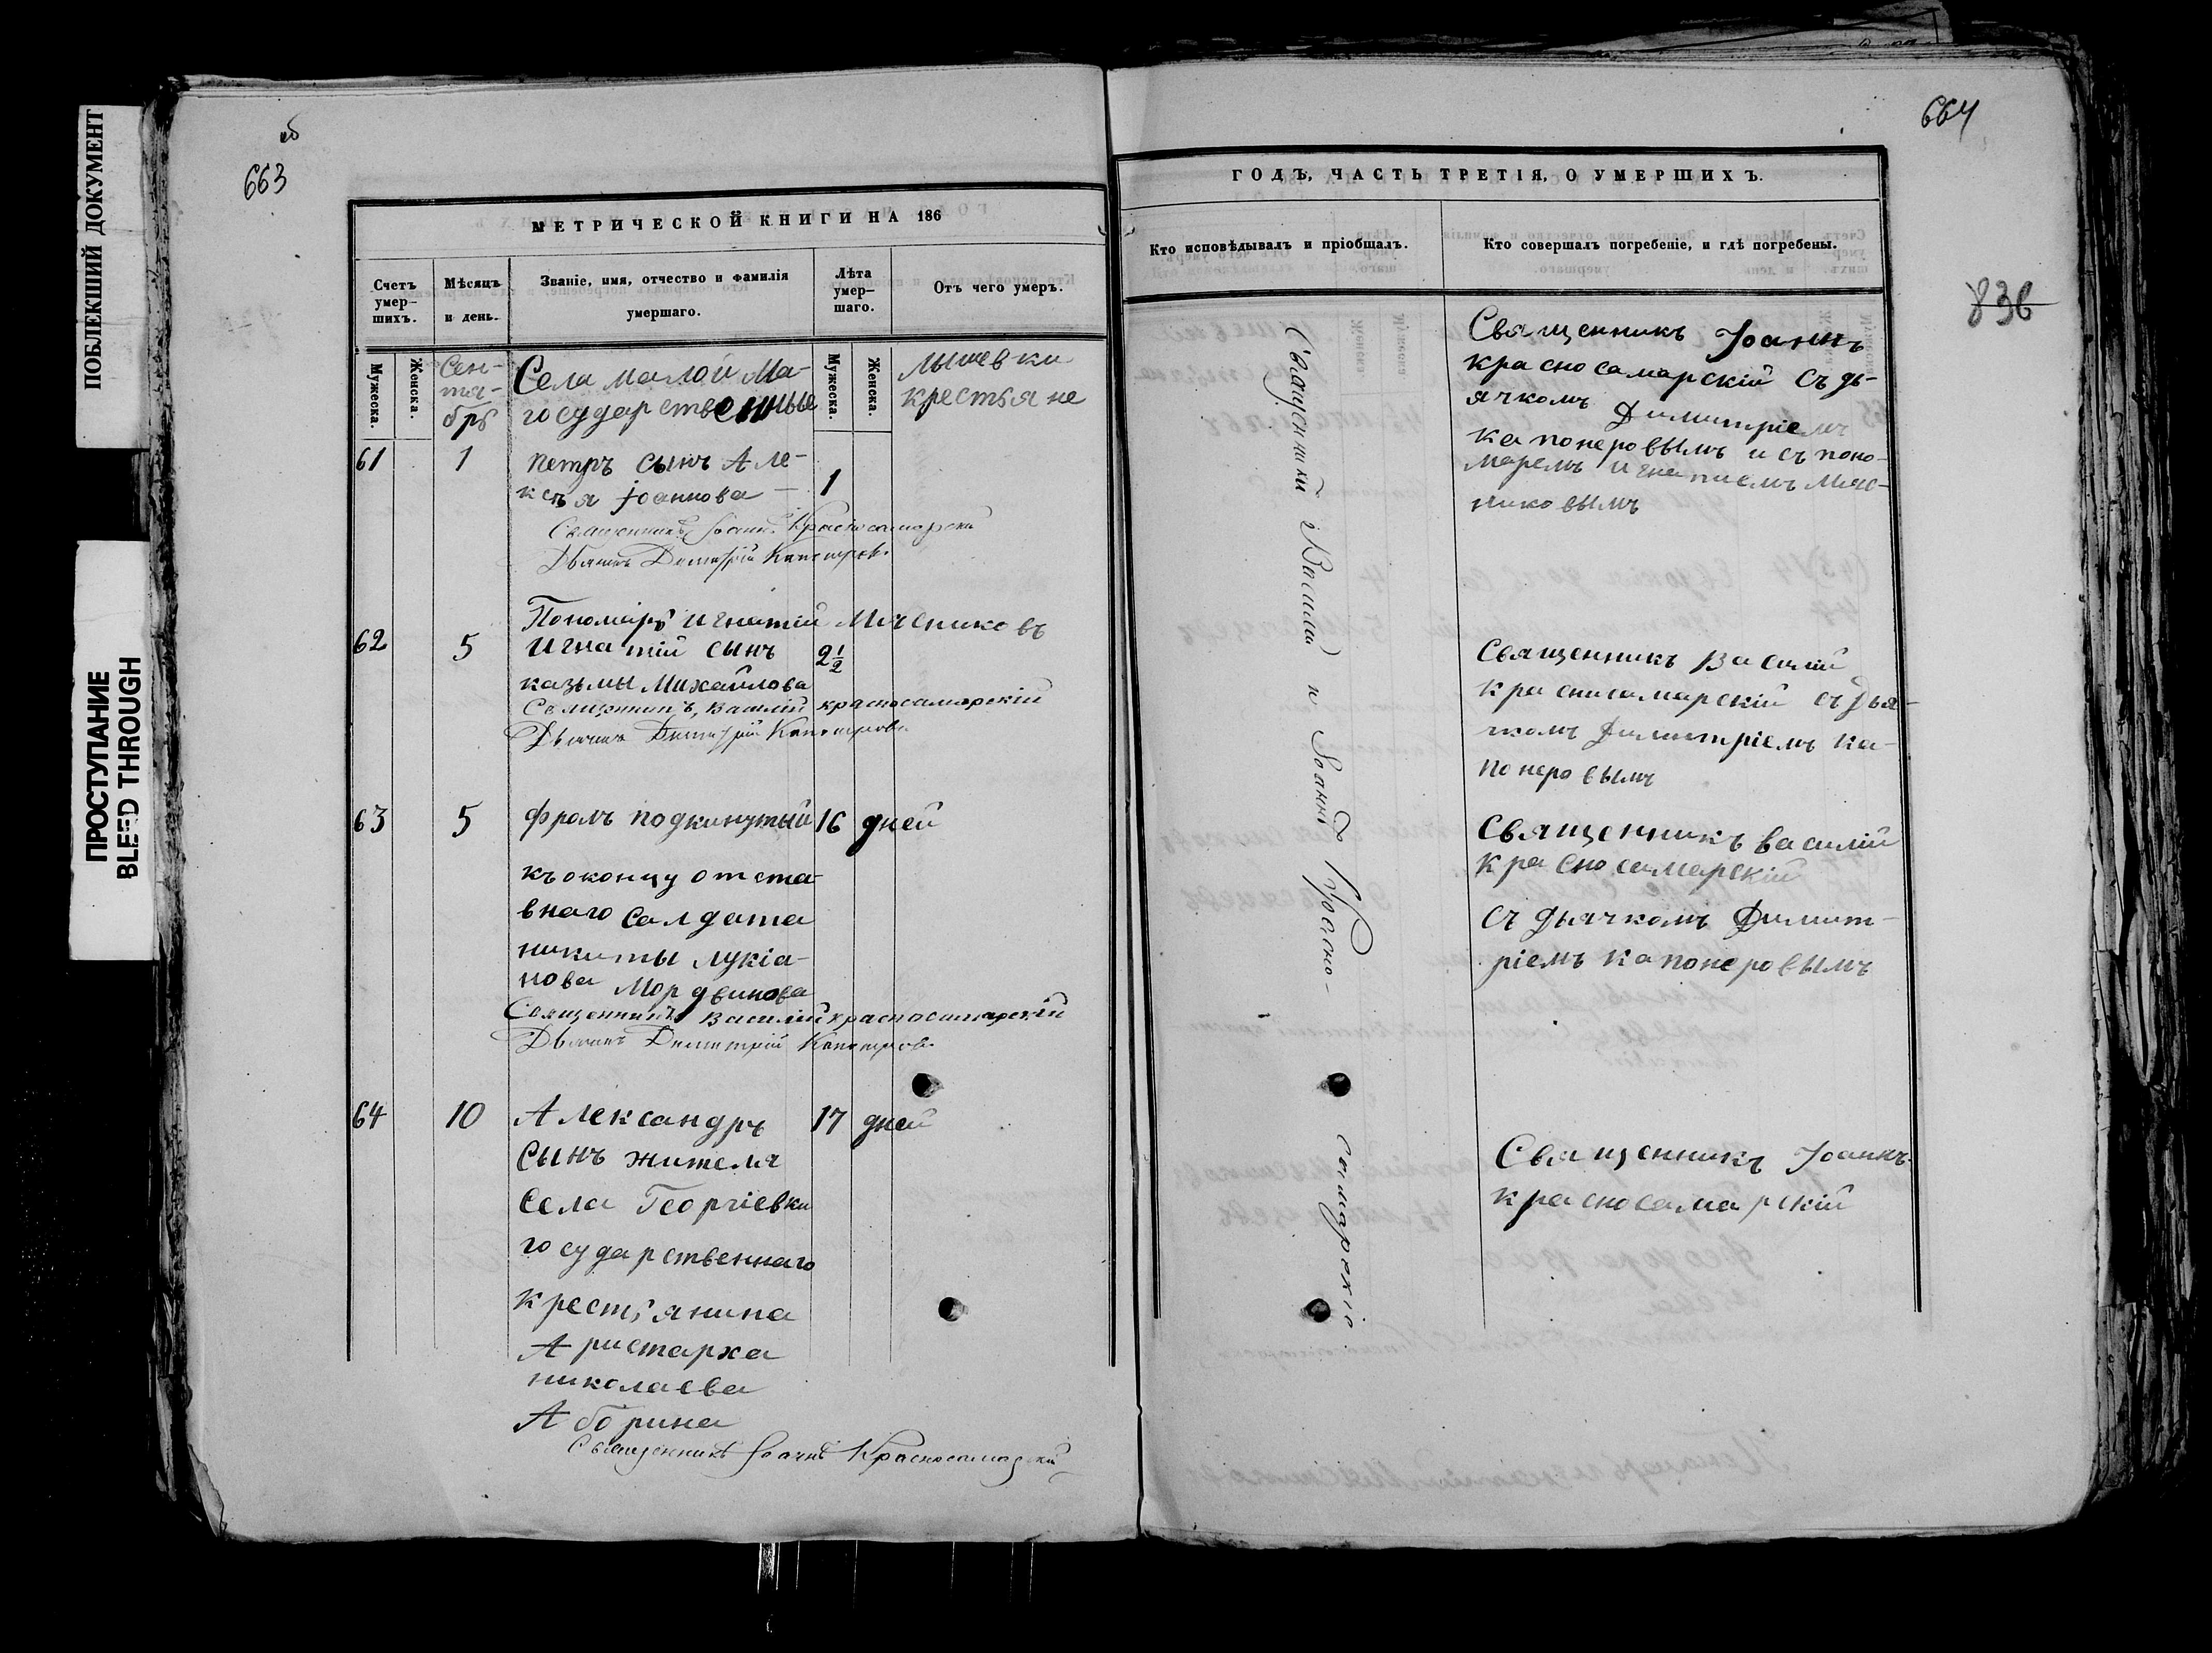 ПОБЛЕКШИЙ ДОКУМЕНТ
ПРОСТУПАНИЕ
BLEED THROUGH
об
663
МЕТРИЧЕСКОЙ КНИГИ НА 186
Счетъ умер-шихъ.
Мѣсяцъ и день.
Званіе, имя, отчество и фамилія умершаго.
Лѣта умер-шаго.
Отъ чего умеръ.
Мужеска.
Женска.
Сен-
тя-
брь
Села малой Ма-
лышевки
государственные
крестьяне
Мужеска.
Женска.
61 1 петръ сынъ Але-
ксѣя Іоаннова — 1
Священникъ Іоаннъ Красносамарскій
Дьячекъ Димитрій Капонеровъ
Пономарь Игнатій Мясниковъ
62 5 Игнатій сынъ 2½
казьмы Михайлова
Священникъ, Василій красносамарскій
Дьячекъ Димитрій Капонеровъ
63 5 фролъ подкинутый 16 дней
къ оконцу отста-
внаго Салдата
никиты лукіа-
нова Мордвинова
Священникъ Василій красносамарскій
Дьячекъ Димитрій Капонеровъ
64 10 Александръ 17 дней
сынъ жителя
села Георгіевки
государственнаго
крестьянина
Аристарха
николаева
Аборина
Священникъ Іоаннъ Красносамарскій
664
836
ГОДЪ, ЧАСТЬ ТРЕТІЯ, О УМЕРШИХЪ.
Кто исповѣдывалъ и пріобщалъ.
Кто совершалъ погребеніе, и гдѣ погребены.
Священники Василій и Іоаннъ Красно-
самарскіе
Священникъ Іоаннъ
красносамарскій съ дь-
ячкомъ Димитріемъ
капонеровымъ и съ поно-
маремъ игнатіемъ Мяс-
никовымъ
Священникъ Василій
красносамарскій съ дья-
чкомъ Димитріемъ ка-
понеровымъ
Священникъ василій
красносамарскій
съ дьячкомъ Димит-
ріемъ капонеровымъ
Священникъ Іоаннъ
красносамарскій